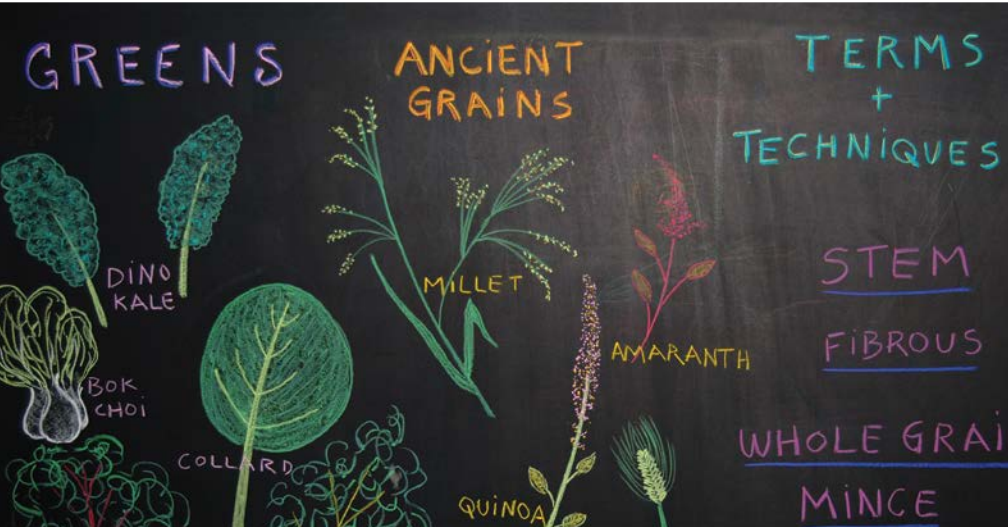 GREENS
DINO
KALE
BOK
CHOi
COLLARD
ANCiENT
GRAiNS
MiLLET
AMARANTH
QUiNOA
TERMS
+
TECHNiQUES
STEM
FiBROUS
WHOLE GRAi
MiNCE